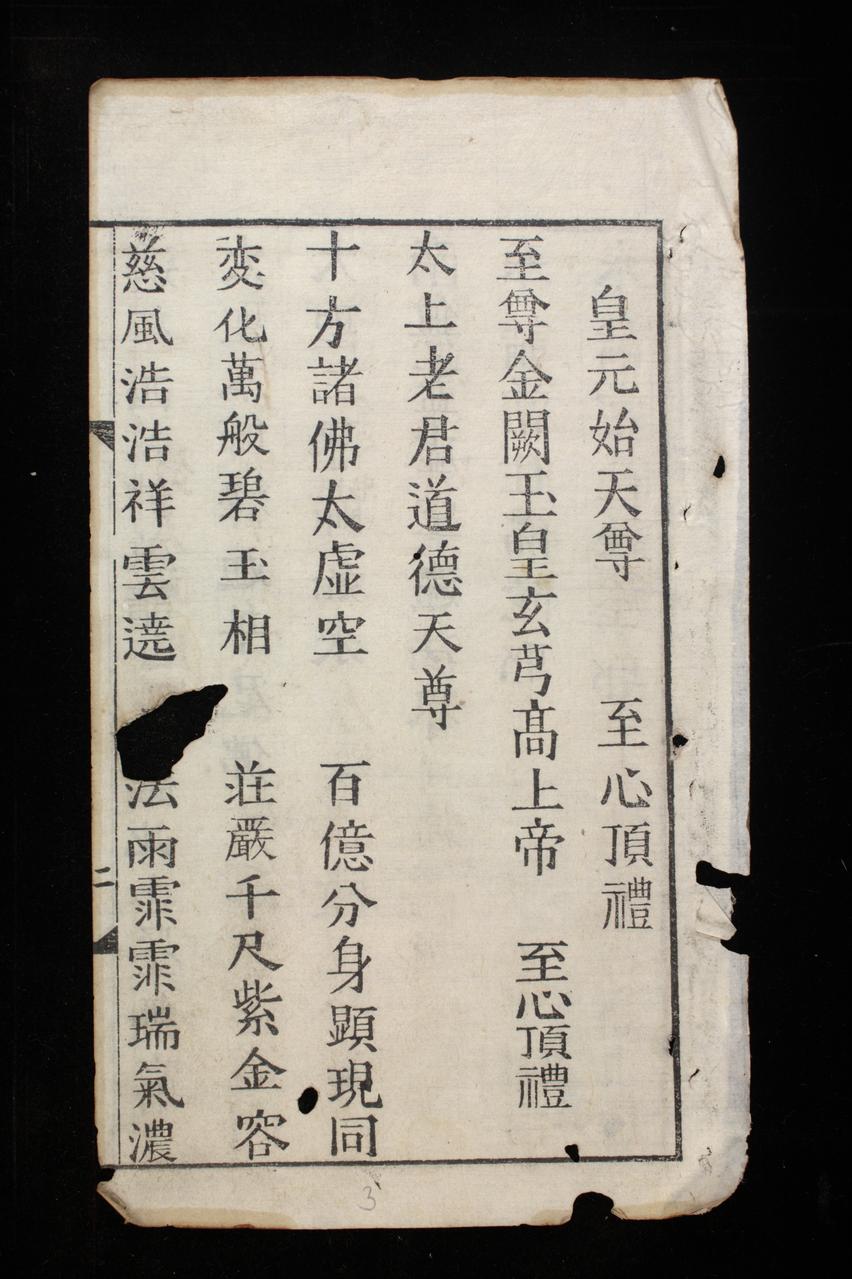 皇元始天尊　至心頂禮
至尊金闕玉皇玄芎髙上帝　至心頂禮
太上老君道德天尊
十方諸佛太虚空　百億分身顕現同
変化萬般碧玉相　荘嚴千尺紫金容
慈風浩浩祥雲遶　法雨霏霏瑞氣濃
二
3